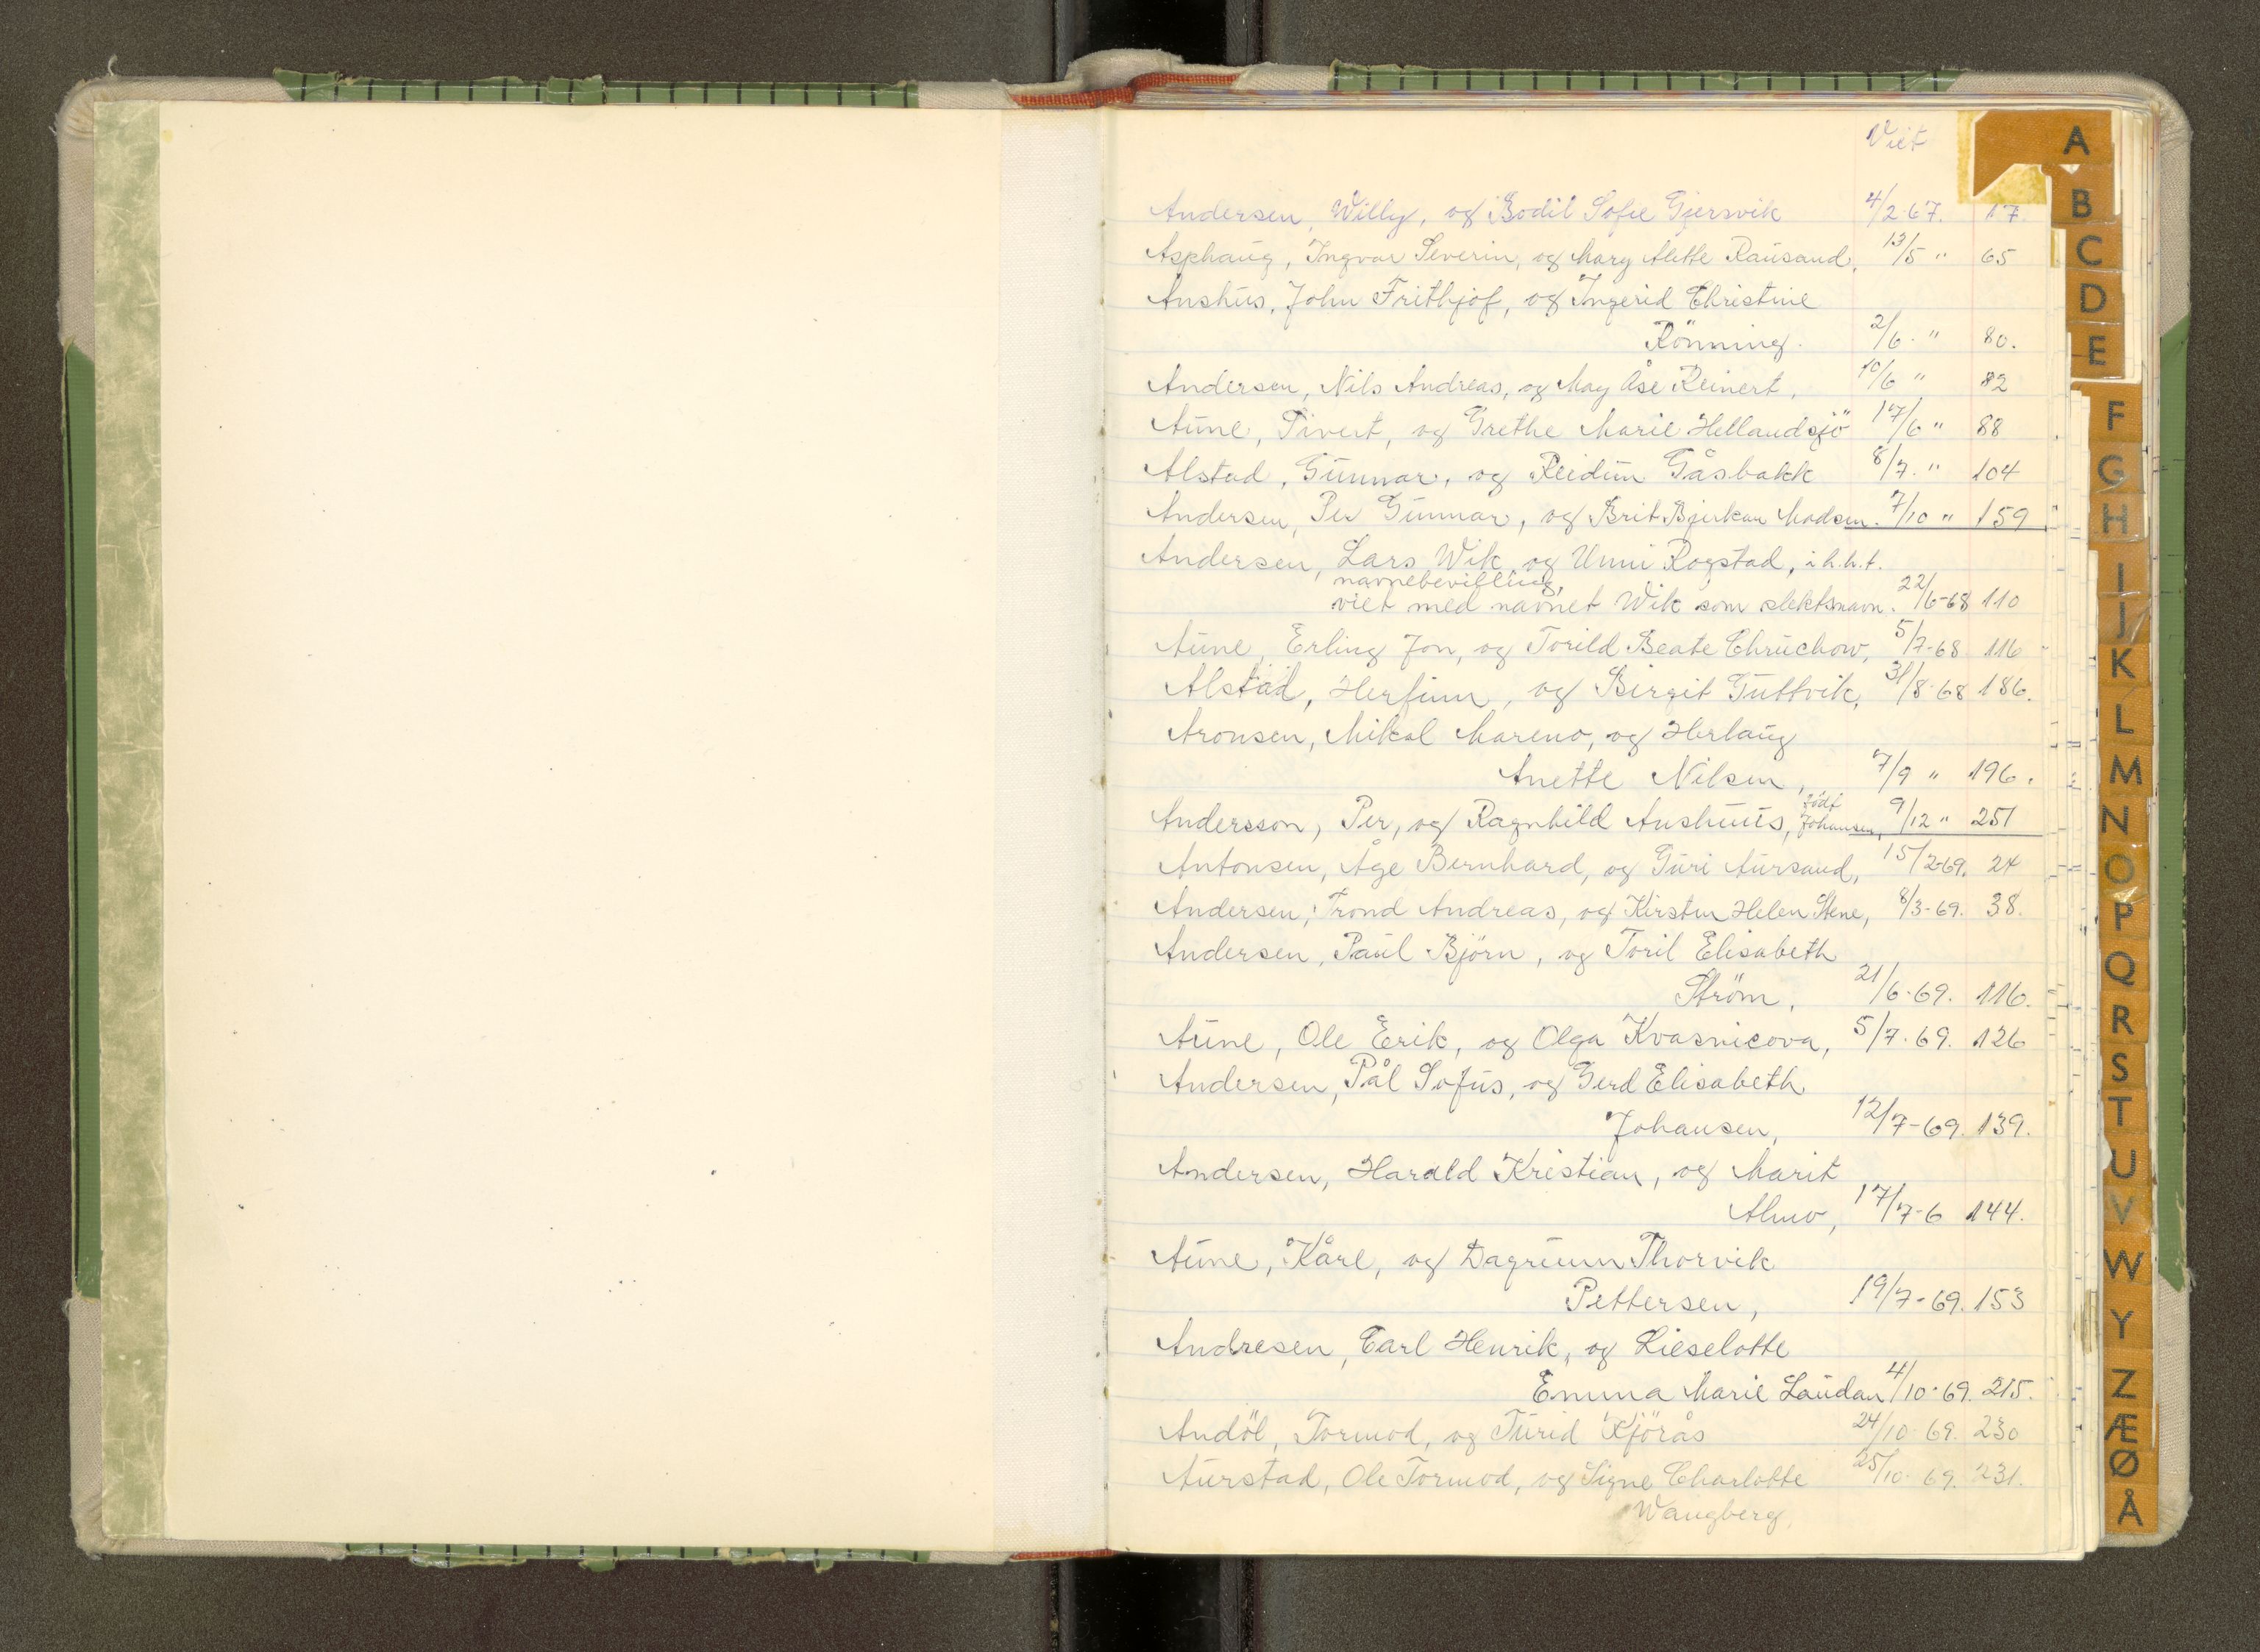 Viet
Andersen, Willy, og Bodil Sofie Gjersvik 4/2-67. 17.
Asphaug, Ingvar Severin, og Mary Alette Rausand, 13/5 " 65
Aushus, John Frithjof, og Ingerid Christine
Rönning. 2/6. " 80.
Andersen, Nils Andreas, og May Åse Reinert, 10/6 " 82
Aune, Sivert, og Grethe Marie Hellandsjö 17/6 " 88
Alstad, Gunnar, og Reidun Gåsbakk 8/7. " 104
Andersen, Per Gunnar, og Brit Bjerkan Madsen. 7/10 " 159
Andersen, Lars Wik, og Unni Rogstad, i h.h.t.
navnebevilling,
viet med navnet Wik som slektsnavn. 22/6-68 110
Aune, Erling Jon, og Torild Beate Chruchow, 5/7-68 116
Alstad, Herfinn, og Birgit Guttvik, 31/8-68 186.
Aronsen, Mikal Mareno, og Herlaug
Anette Nilsen, 7/9 " 196.
Andersson, Per, og Ragnhild Aushuus, födt Johansen, 9/12 " 251
Antonsen, Åge Bernhard, og Guri Aursand, 15/2-69. 24
Andersen, Trond Andreas, og Kirsten Helen Stene, 8/3-69. 38.
Andersen, Paul Björn, og Toril Elisabeth
Ström, 21/6-69. 116.
Aune, Ole Erik, og Olga Kvasnicova, 5/7. 69. 126
Andersen, Pål Sofus, og Gerd Elisabeth
Johansen, 12/7-69. 139.
Andersen, Harald Kristian, og Marit
Almo, 17/7-6 144.
Aune, Kåre, og Dagrunn Thorvik
Pettersen, 19/7-69. 153
Andresen, Carl Henrik, og Lieselotte
Emma Marie Laudan 4/10-69. 215.
Andöl, Tormod, og Turid Kjörås 24/10 69. 230
Aurstad, Ole Tormod, og Signe Charlotte 25/10. 69. 231.
Wangberg.
A
B
C
D
E
F
G
H
I
J
K
L
M
N
O
P
Q
R
S
T
U
V
W
Y
Z
Æ
Ø
Å